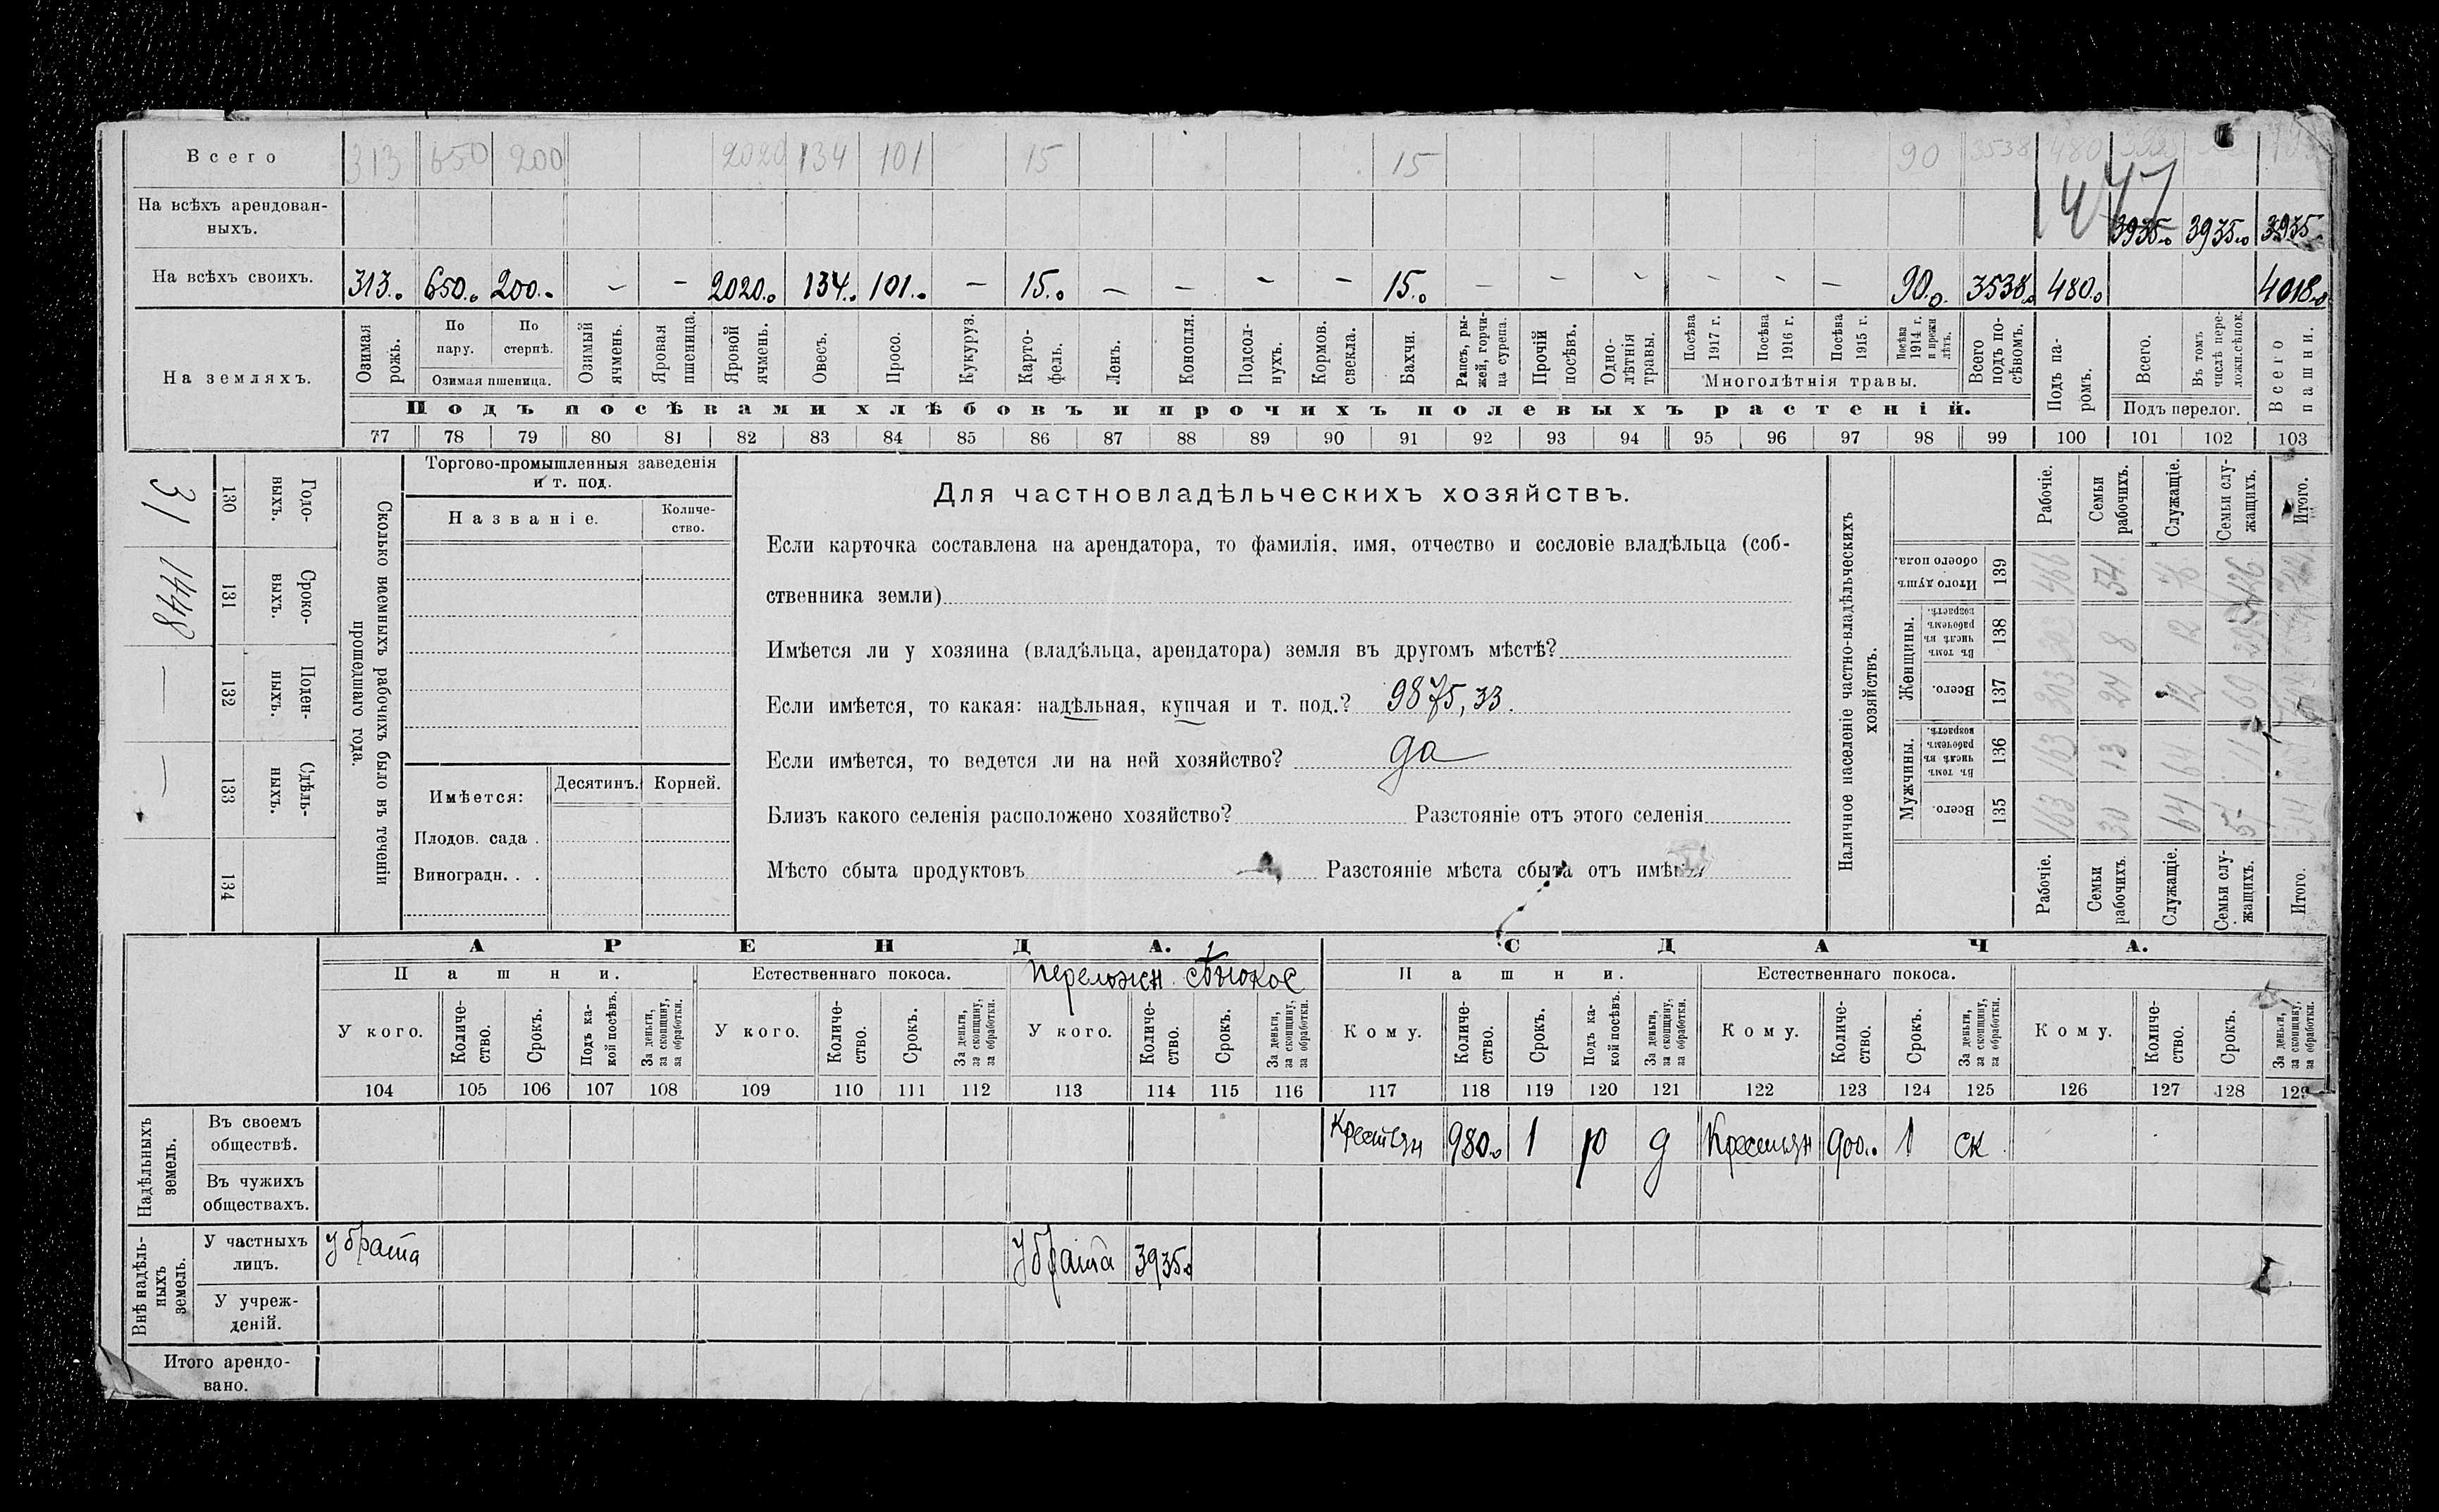 Всего 313 650 200 2020 134 101 15 15 90 3538 480
На всѣхъ арендован-
ныхъ. 3935.0 3935.0 3935
147
На всѣхъ своихъ. 313.0 650.0 200.0 – – 2020.0 134.0 101.0 – 15.0 – – – – 15.0 – – – – – – 90.0 3538.0 480.0 4018.0
На земляхъ.
Озимая рожь.
По пару.
По стернѣ.
Озимая пшеница.
Озимый ячмень.
Яровая пшеница.
Яровой ячмень.
Овесъ.
Просо.
Кукуруз.
Карто-
фель.
Ленъ.
Конопля.
Подсол-
нухъ.
Кормов.
свекла.
Бахчи.
Рапсъ, ры-
жей, горчи-
ца сурепа.
Прочій
посѣвъ.
Одно-
лѣтнія
травы.
Посѣва
1917 г.
Посѣва
1916 г.
Посѣва
1915 г.
Посѣва
1914 г.
и прежн
лѣтъ.
Многолѣтнія травы.
Всего
подъ по-
сѣвомъ.
Подъ па-
ромъ.
Всего.
Въ томъ
числѣ пере-
ложн.сѣнок.
Подъ перелог.
Всего
пашни.
Подъ посѣвами хлѣбовъ и прочихъ полевыхъ растеній.
77 78 79 80 81 82 83 84 85 86 87 88 89 90 91 92 93 94 95 96 97 98 99 100 101 102 103
Сколько наемныхъ рабочихъ было въ теченіи
прошедшаго года.
Годо-
выхъ.
130
31
Сроко-
выхъ.
131
1448
Поден-
ныхъ.
132
—
Сдѣль-
ныхъ.
133
—
134
Торгово-промышленныя заведенія
и т. под.
Названіе.
Количе-
ство.
Имѣется:
Десятинъ. Корней.
Плодов. сада .
Виноградн. . .
Для частновладѣльческихъ хозяйствъ.
Если карточка составлена на арендатора, то фамилія, имя, отчество и сословіе владѣльца (соб-
ственника земли)
Имѣется ли у хозяина (владѣльца, арендатора) земля въ другомъ мѣстѣ?
Если имѣется, то какая: надѣльная, купчая и т. под.? 9875,33.
Если имѣется, то ведется ли на ней хозяйство? да
Близъ какого селенія расположено хозяйство? Разстояніе отъ этого селенія
Мѣсто сбыта продуктовъ Разстояніе мѣста сбыта отъ имѣнія
Наличное населеніе частно-владѣльческихъ
хозяйствъ.
Рабочіе.
Семьи
рабочихъ.
Служащіе.
Семьи слу-
жащихъ.
Итого.
Итого душъ
обоего пола.
139 466 54
Женщины.
Въ томъ
числѣ въ
рабочемъ
возрастѣ.
138 303 8 12
Всего.
137 303 24 12 69
Мужчины.
Въ томъ
числѣ въ
рабочемъ
возрастѣ.
136 163 13 64 11
Всего.
135 163 30 64
Рабочіе.
Семьи
рабочихъ.
Служащіе.
Семьи слу-
жащихъ.
Итого.
АРЕНДА. СДАЧА.
Пашни. Естественнаго покоса. переложн. сѣнокос Пашни. Естественнаго покоса.
У кого.
Количе-
ство.
Срокъ.
Подъ ка-
кой посѣвъ.
За деньги,
за скопщину,
за обработки.
У кого.
Количе-
ство.
Срокъ.
За деньги,
за скопщину,
за обработки.
У кого.
Количе-
ство.
Срокъ.
За деньги,
за скопщину,
за обработки.
Кому.
Количе-
ство.
Срокъ.
Подъ ка-
кой посѣвъ.
За деньги,
за скопщину,
за обработки.
Кому.
Количе-
ство.
Срокъ.
За деньги,
за скопщину,
за обработки.
Кому.
Количе-
ство.
Срокъ.
За деньги,
за скопщину,
за обработки.
104 105 106 107 108 109 110 111 112 113 114 115 116 117 118 119 120 121 122 123 124 125 126 127 128 129
Надѣльныхъ
земель.
Въ своемъ
обществѣ. Крестьян 980.0 1 р д Крестьян 900.0 1 ск
Въ чужихъ
обществахъ.
Внѣ надѣль-
ныхъ
земель.
У частныхъ
лицъ. У брата У брата 3935.0
У учреж-
деній.
Итого арендо-
вано.